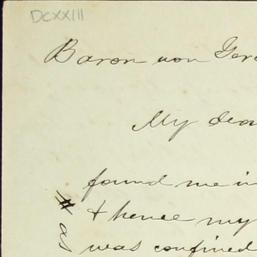 DCXXIII
Baron von
My dear
found me in
& hence my
was confined